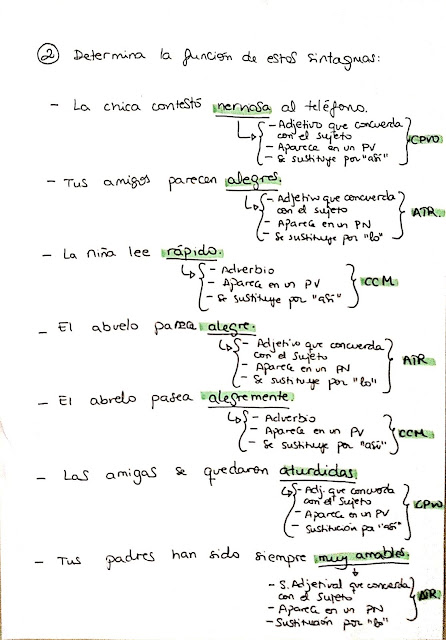 ② Determina la función de estos sintagmas:
- La chica contestó nerviosa al teléfono.
- Adjetivo que concuerda
con el sujeto
- Aparece en un PV
- Se sustituye por "así"
CPVO
- Tus amigos parecen alegres.
- Adjetivo que concuerda
con el sujeto
- Aparece en un PN
- Se sustituye por "lo"
ATR.
- La niña lee rápido.
- Adverbio
- Aparece en un PV
- Se sustituye por "así"
CCM
- El abuelo parece alegre.
- Adjetivo que concuerda
con el sujeto
- Aparece en un PN
- Se sustituye por "lo"
ATR
- El abuelo pasea alegremente.
- Adverbio
- Aparece en un PV
- Se sustituye por "así"
CCM.
- Las amigas se quedaron aturdidas
- Adj. que concuerda
con el sujeto
- Aparece en un PV
- Sustitución por "así"
CPVO
- Tus padres han sido siempre muy amables.
- S. Adjetival que concuerda
con el sujeto
- Aparece en un PN
- Sustitución por "lo"
ATR.